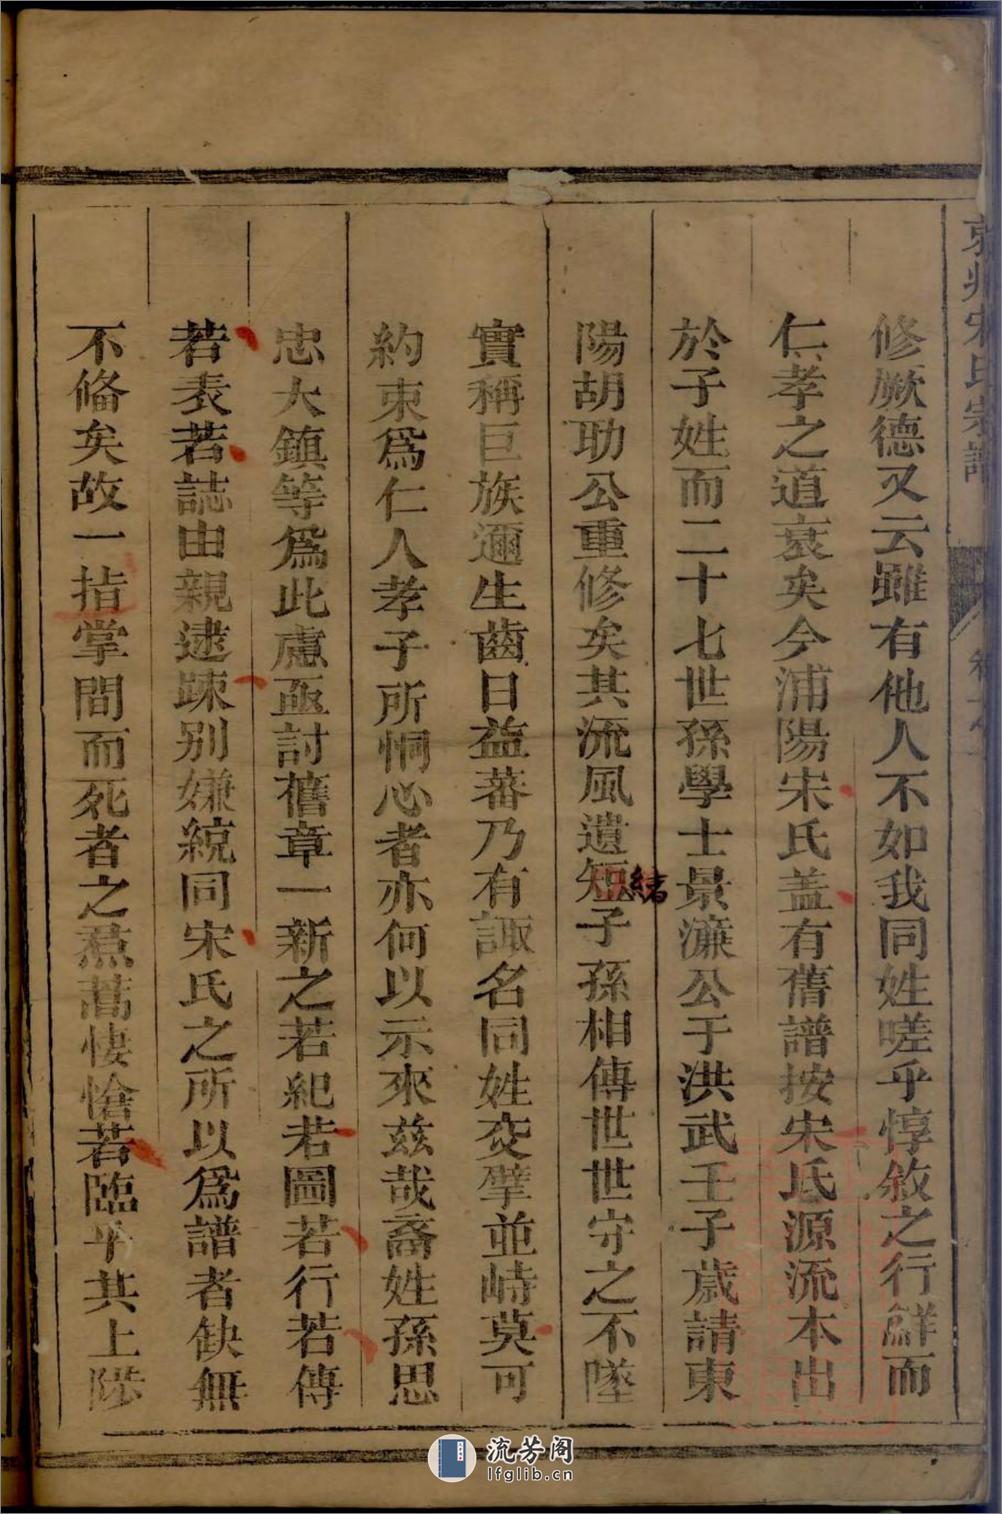 京兆宋氏宗譜
修厥德又云雖有他人不如我同姓嗟乎惇敘之行鮮而
仁孝之道衰矣今浦陽宋氏盖有舊譜按宋氏源流本出
於子姓而二十七世孫學士景濂公于洪武壬子歲請東
陽胡助公重修矣其流風遺短子孫相傳世世守之不墜
緒
實稱巨族邇生齒日益蕃乃有諏名同姓交擘並峙莫可
約束爲仁人孝子所恫心者亦何以示來兹哉裔姓孫思
忠大鎮等爲此慮亟討舊章一新之若紀若圖若行若傳
若表若誌由親逮疎别嫌統同宋氏之所以爲譜者缺無
不俻矣故一指掌間而死者之焄蒿悽愴若臨乎其上陟
流芳阁
lfglib.cn